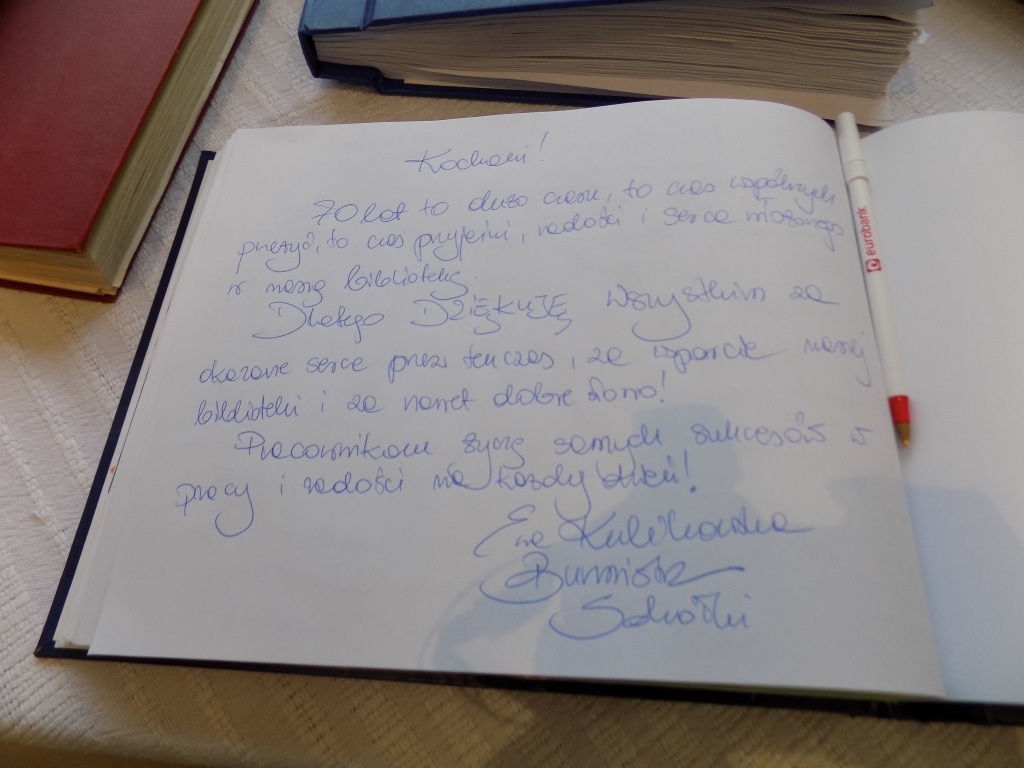 Kochani!
70 lat to dużo czasu, to czas wspólnych
przeżyć, to czas przyjaźni, radości i serca niosącego
w naszej bibliotece.
Dlatego DZIĘKUJĘ wszystkim za
okazane serce przez ten czas, za wsparcie naszej
biblioteki i za nawet dobre słowo!
Pracownikom życzę samych sukcesów w
pracy i radości na każdy dzień!
Ewa Kulikowska
Burmistrz
Sokółki
eurobank